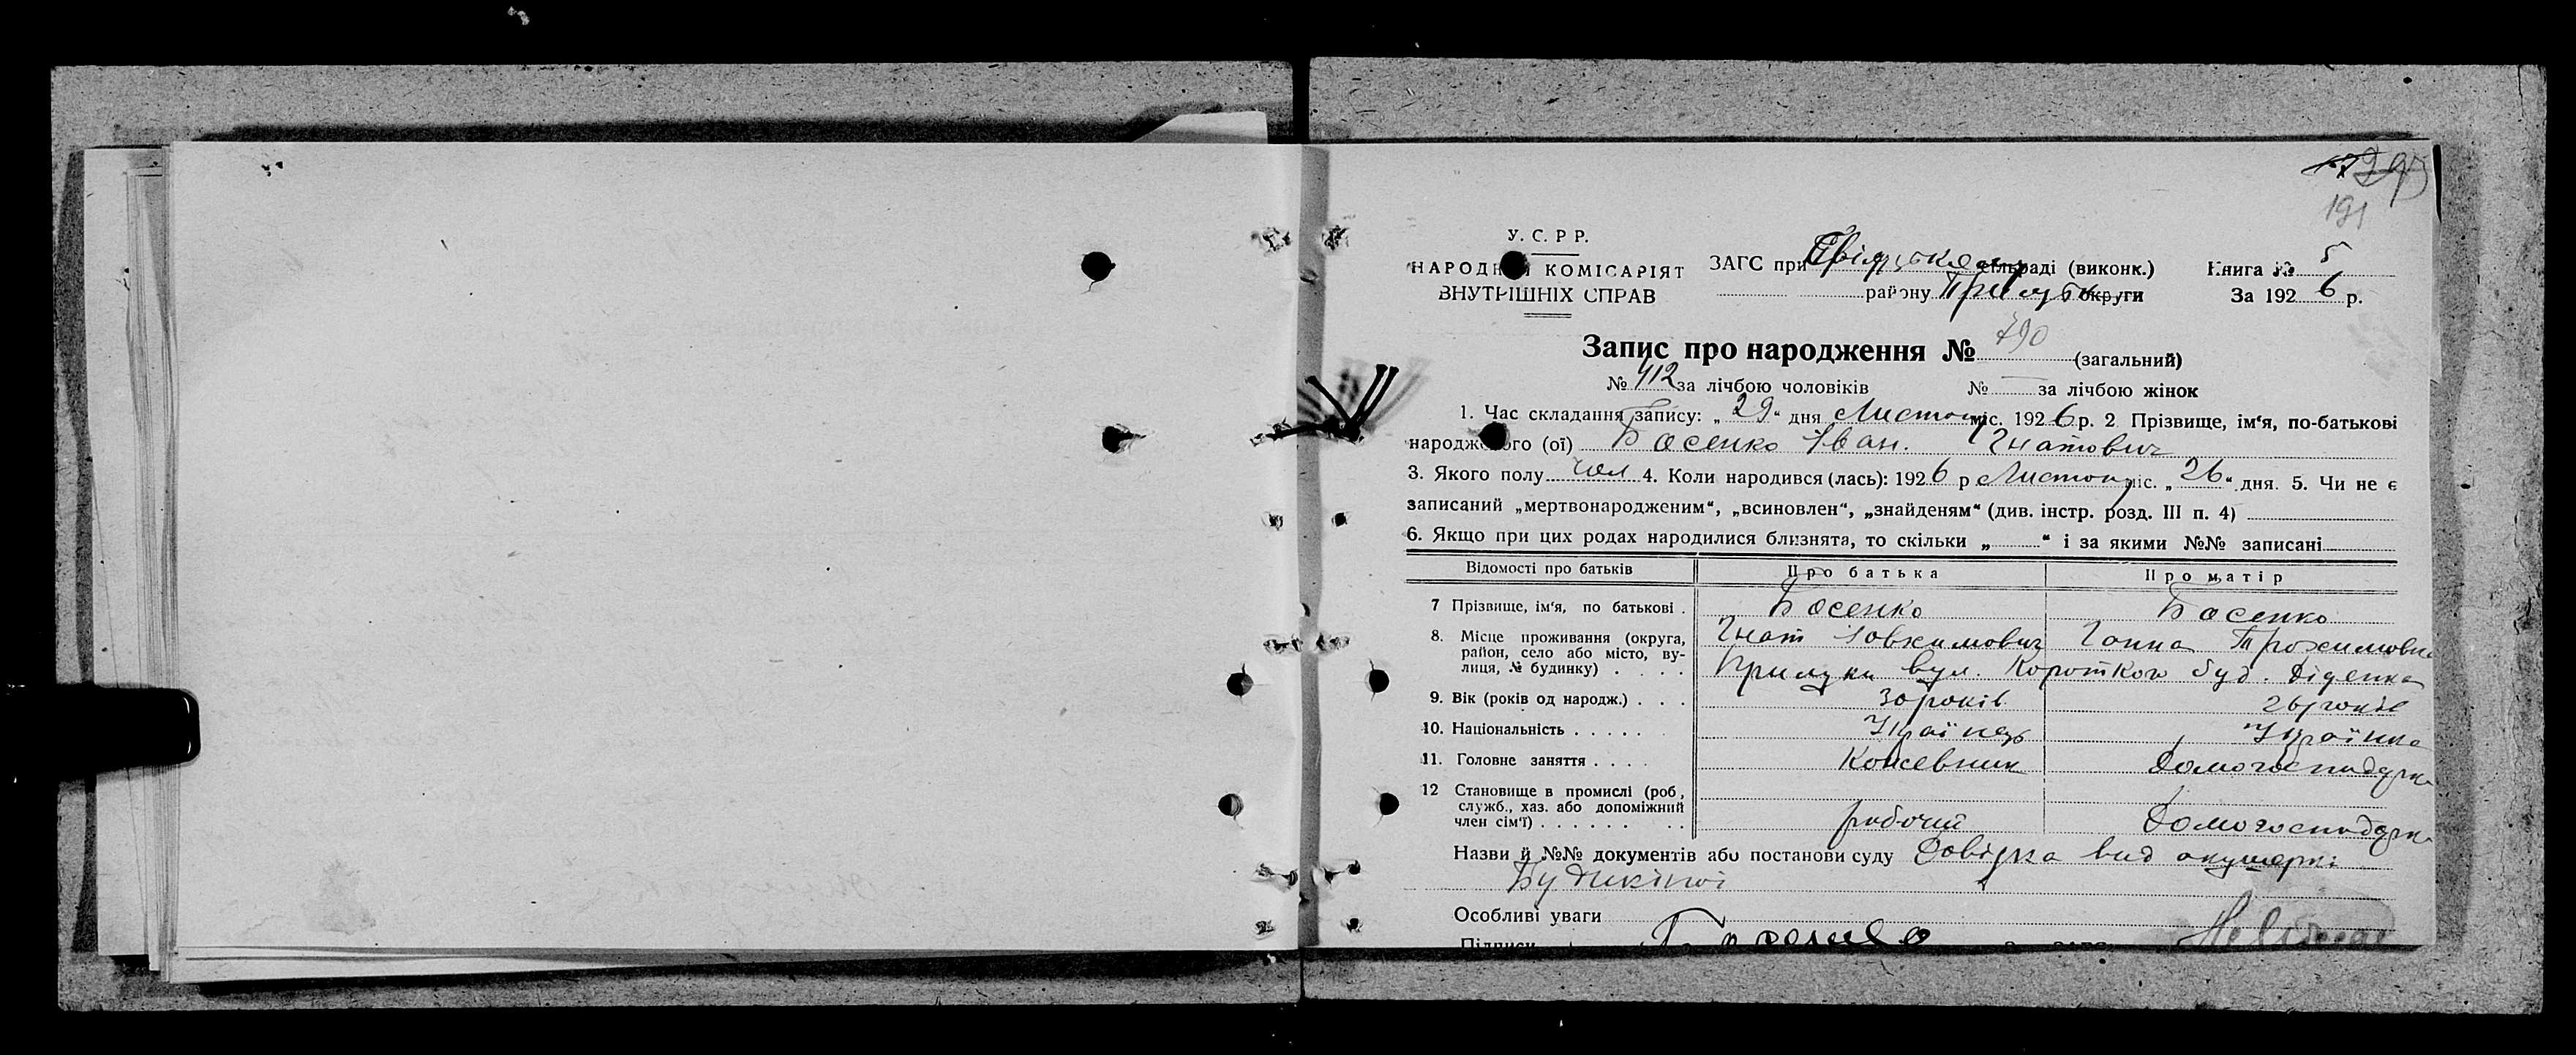 195
У. С. Р Р.
НАРОДНИЙ КОМІСАРІЯТ
ВНУТРІШНІХ СПРАВ
ЗАГС при сільраді (виконк.)
району Прилуцьк округи
Книга № 5
За 1926 р.
Запис про народження № 790 (загальний)
№ 412 за лічбою чоловіків № — за лічбою жінок
1. Час складання запису: „29“ дня Листопад міс. 1926 р. 2 Прізвище, ім‘я, по-батькові
народженого (ої) Босенко Іван. Гнатович
3. Якого полу чол 4. Коли народився (лась): 1926 р Листопад міс. „26“ дня. 5. Чи не є
записаний „мертвонародженим“, „всиновлен“, „знайденям“ (див. інстр. розд. III п. 4)
6. Якщо при цих родах народилися близнята, то скільки „ “ і за якими №№ записані
Відомості про батьків Про батька Про матір
7 Прізвище, ім‘я, по батькові . Босенко Босенко
8. Місце проживання (округа, район, село або місто, вулиця, № будинку) . . . . Гнат Йовхимович Ганна Трохимовна
Прилуки вул. Короткого буд. Діденка
9. Вік (років од народж.) . . . 30 років 26 років
10. Національність . . . . . Українець Українка
11. Головне заняття . . . . Кожевник Домогосподарка
12 Становище в промислі (роб, служб., хаз. або допоміжний член сім‘ї) . . . . . . . . рабочий Домогосподарка
Назви й №№ документів або постанови суду Довідка вид акушерки
Особливі уваги
Підписи Босенко